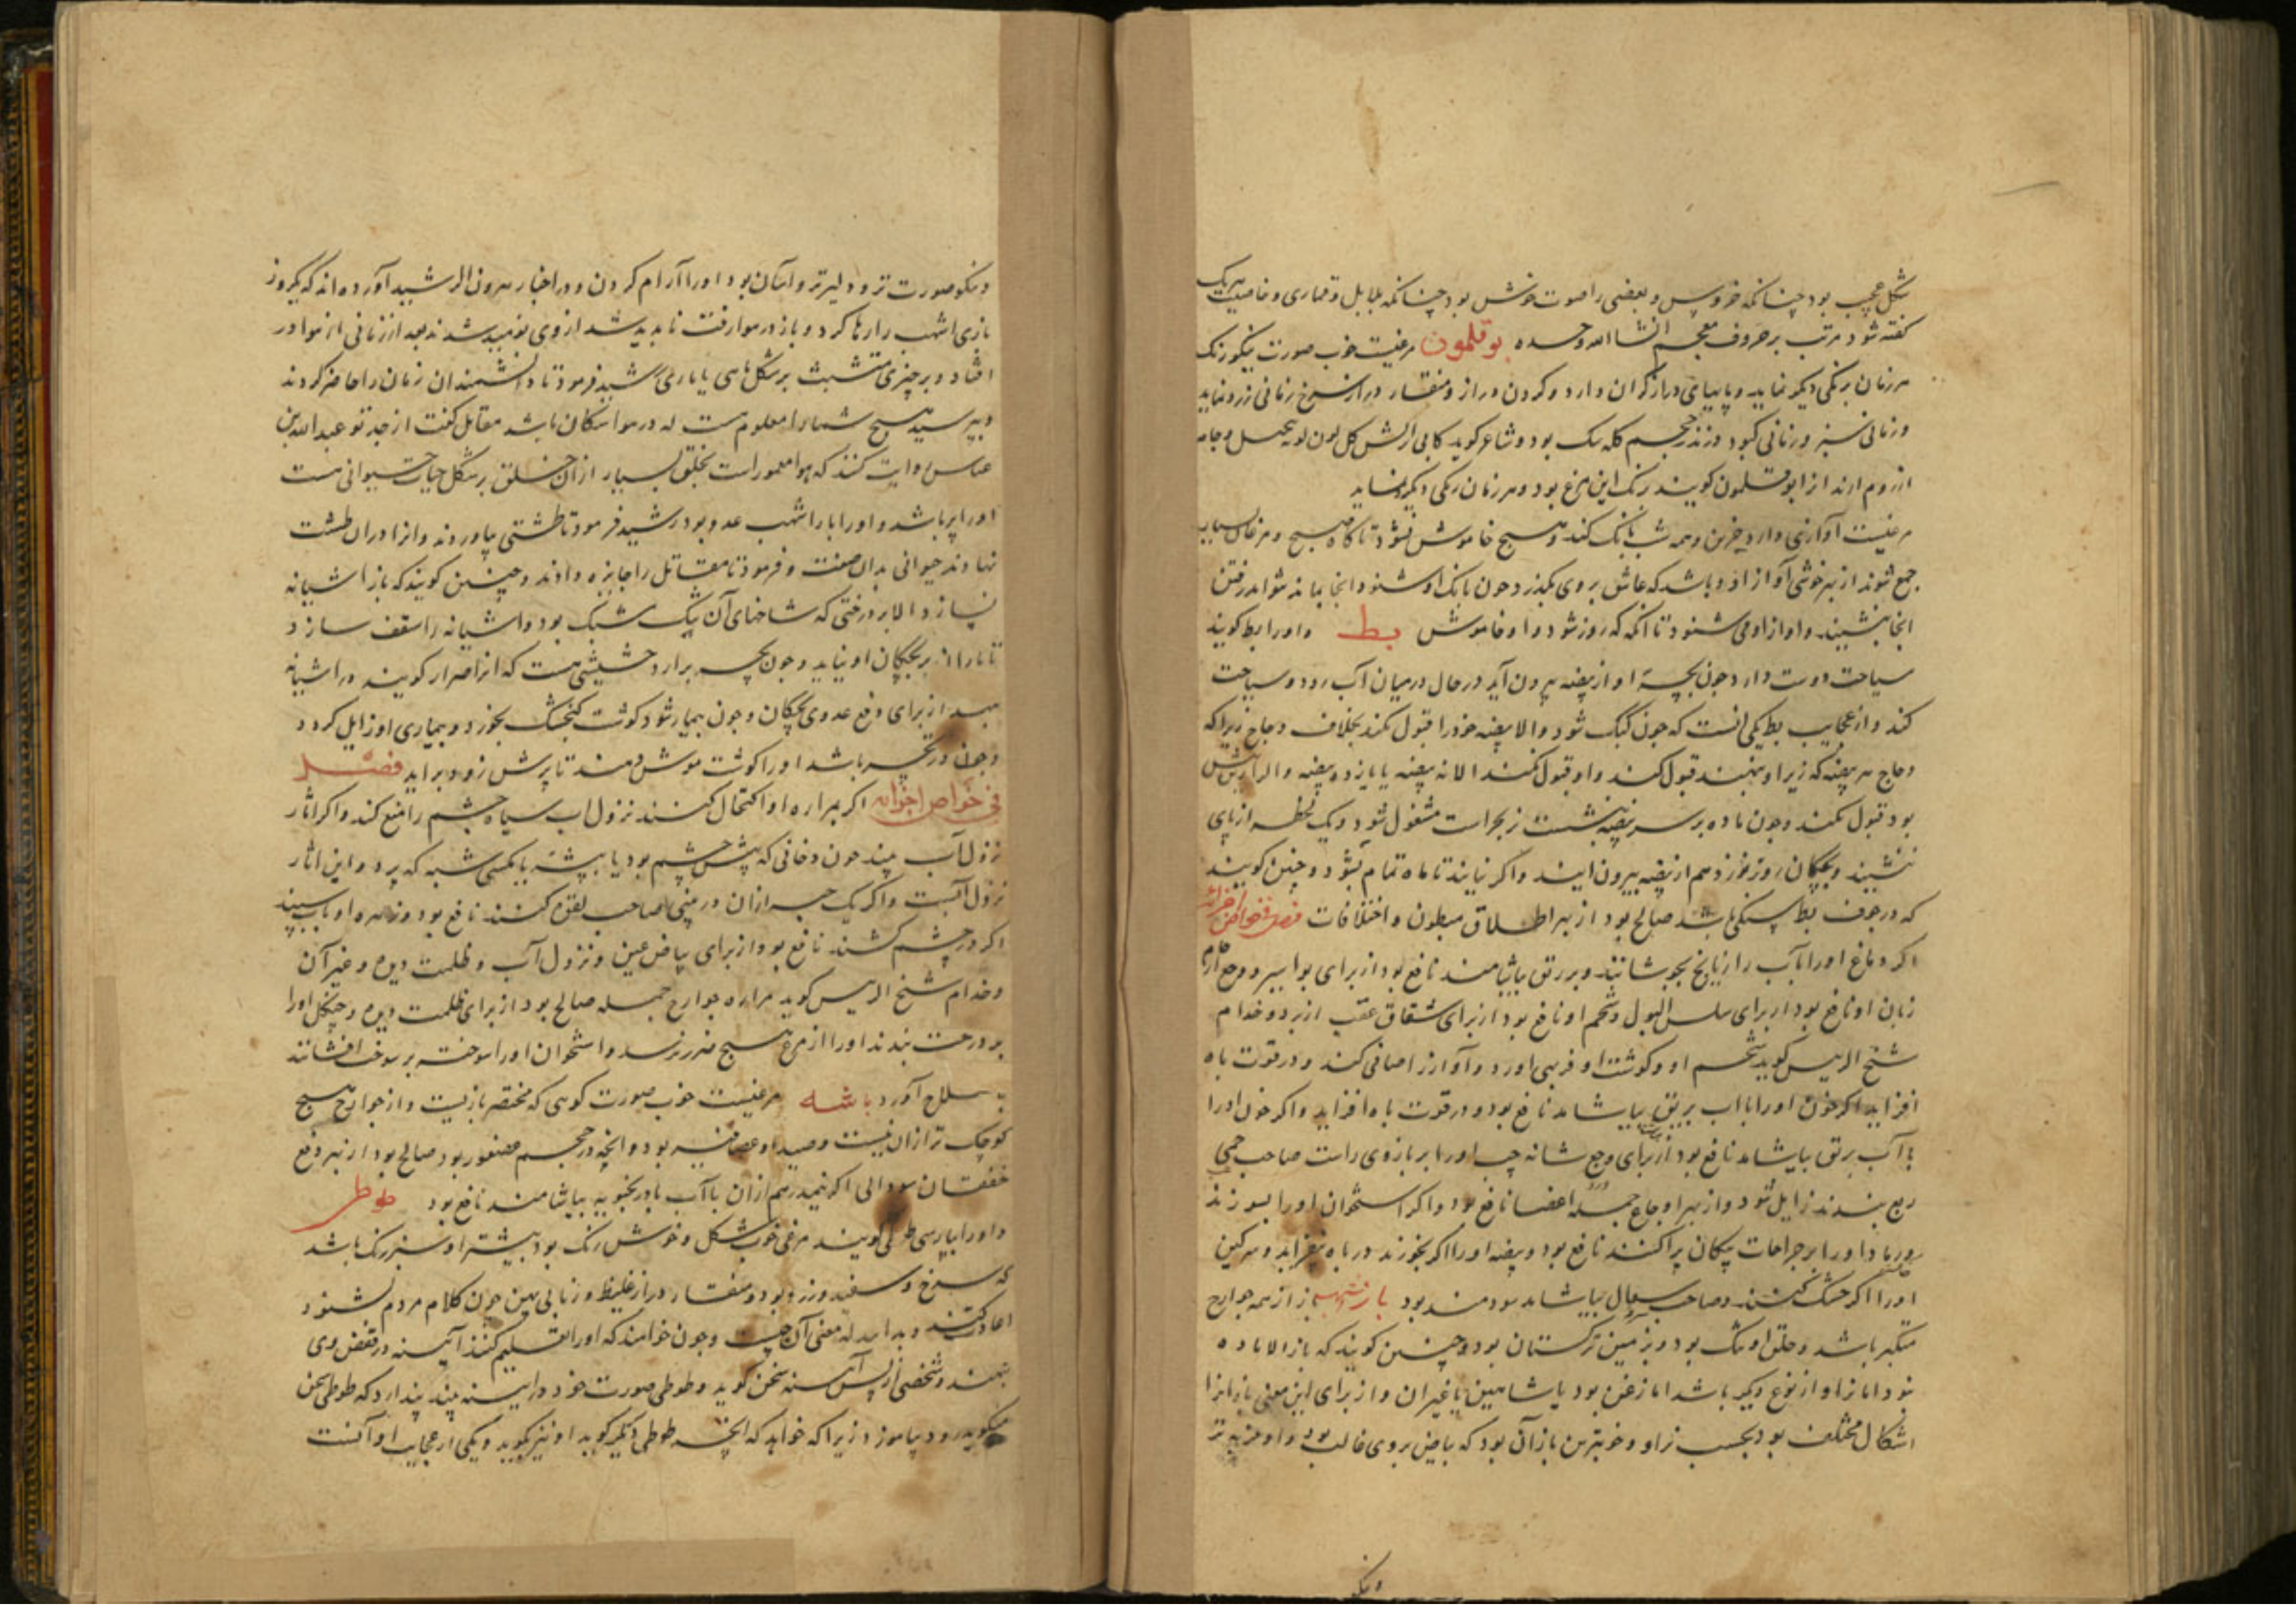 شکل عجب بود چنانکه خروس و بعضی را صوت خوش بود چنانکه بلابل و قماری و خاصیت هریک
کفته شود مرتب بر حروف معجم انشا الله وحده بوقلمون مرغیست خوب صورت نیکو رنک
هر زمان برنکی دیکر نماید و پایهای دراز کران دارد و کردن دراز و منقار دراز سرخ زمانی زرد نماید
و زمانی سبز و زمانی کبود و در حجم کلنک بود و شاعر کوید
از روم ارند انرا بوقلمون کویند رنک این مرغ بود و هر زمان رنکی دیکر نماید
مرغیست آوازی دارد حزین و همه شب بانک کند و هیچ خاموش نشود تا کاه صبح و مرغان بسیار
جمع شوند از بهر خوشی آواز او و باشد که عاشق بر وی بکذرد جون بانک او شنود انجا بماند نتواند رفتن
انجا بنشیند و اواز او می شنود تا انکه که روز شود و او خاموش بط و اورا بط کویند
سیاحت دوست دارد جون بچهٔ او از بیضه بیرون آید در حال در میان آب رود و سیاحت
کند و از عجایب بط یکی انست که جون کنک شود الا بیضه خود را قبول نکند بخلاف دجاج زیرا که
دجاج هر بیضه که زیر او بنهند قبول کند و او قبول نکند الا نه بیضه یا یازده بیضه و اکر ازین بیش
بود قبول نکند و جون ماده بر سر بیضه نشست نر بحراست مشغول شود و یک لحظه از پای
ننشیند و بچکان روز نوزدهم از بیضه بیرون ایند و اکر نیایند تا ماه تمام بشود و چنین کویند
که در جوف بط سنکی باشد صالح بود از بهر اطلاق مبطون و اختلافات فصل فی خواص اجزائه
اکر دماغ اورا با آب رازیانج بجوشانند و بر ریق بیاشامند نافع بود از برای بواسیر و وجع ارحام
زبان او نافع بود از برای سلس البول و شحم او نافع بود از برای شقاق عقب از برد و خدام
شیخ الرییس کوید شحم او و کوشت او فربهی اورد و آواز را صافی کند و در قوت باه
افزاید اکر خون اورا با اب بر ریق بیاشامد نافع بود و در قوت باه افزاید و اکر خون اورا
با آب بر ریق بیاشامد نافع بود از برای وجع شانه چپ اورا بر بازوی راست صاحب حمی
ربع بندند زایل شود و از بهر اوجاع جمله اعضا نافع بود و اکر استخوان اورا بسوزند
و رماد اورا بر جراحات پیکان پراکنند نافع بود و بیضه اورا اکر بخورند در باه بیفزاید و سرکین
اورا اکر خشک کنند و صاحب سعال بیاشامد سودمند بود باز از همه جوارح
متکبر باشد و خلق او تنک بود و بزمین ترکستان بود و چنین کویند که باز الا ماده
نبود اما نر او از نوع دیکر باشد اما زغن بود یا شاهین یا غیر ان و از برای این معنی بازانرا
اشکال مختلف بود بحسب نر او و خوبترین بازان آن بود که بیاض بر وی غالب بود و او فربه تر
ونیکو
ونیکو صورت تر و دلیرتر و اسان بود اورا آرام کردن و در اخبار هرون الرشید آورده اند که یکروز
بازی اشهب را رها کرد و باز در هوا رفت تا ناپدید شد از وی نومید شدند بعد از زمانی از هوا در
افتاد و بر چیزی متشبث بر شکل ماهی یا ماری رشید فرمود تا دانشمندان زمان را حاضر کردند
و بپرسید هیچ شمارا معلوم هست که در هوا سکان باشد مقاتل کفت از جد تو عبدالله بن
عباس روایت کنند که هوا معمور است بخلق بسیار از ان خلق بر شکل حیات حیوانی هست
اورا پر باشد و اورا باز اشهب عدو بود رشید فرمود تا طشتی بیاوردند و انرا در ان طشت
نهادند حیوانی بدان صفت و فرمود تا مقاتل را جایزه دادند و چنین کویند که باز اشیانه
نسازد الا بر درختی که شاخهای آن تنک مشبک بود و اشیانه را سقف سازد
تا باران بر بچکان او نیاید و جون بچه برارد حشیشی هست که انرا مرار کویند در اشیانه
نهد از برای دفع عدوی بچکان و جون بیمار شود کوشت کنجشک بخورد و بیماری او زایل کردد
و جون در تحسر باشد اورا کوشت موش دهند تا پرش زود براید فصل
فی خواص اجزائه اکر بمراره او اکتحال کنند نزول اب سیاه چشم را منع کند و اکر اثار
نزول آب بیند جون دخانی که پیش چشم بود یا پشه یا مکسی شبه که پرد و این اثار
نزول آبست و اکر یک حبه از ان در بینی صاحب لقوه کنند نافع بود و زهره او با آب سپید
اکر در چشم کشند نافع بود از برای بیاض عین و نزول آب و ظلمت دیده و غیر آن
و خدام شیخ الرییس کوید مراره جوارح جمله صالح بود از برای ظلمت دیده و چنکل اورا
بر درخت بندند اورا از مرغ هیچ ضرر نرسد و استخوان اورا سوخته بر سوخته افشانند
بصلاح آورد باشه مرغیست خوب صورت کویی که مختصر بازیست و از جوارح هیچ
کوچک تر از ان نیست و صید او عصافیر بود و انچه در حجم عصفور بود صالح بود از بهر دفع
خفقان سودایی اکر نیم درهم از ان با آب بادرنجبویه بیاشامند نافع بود طوطی
و اورا بپارسی طوطی کویند مرغی خوب شکل و خوش رنک بود بیشتر او سبز رنک باشد
که سرخ و سفید و زرد بود و منقار دراز غلیظ و زبانی پهن جون کلام مردم بشنود
اعادت کند و نداند که معنی آن چیست و جون خواهند که اورا تعلیم کنند آیینه در قفص وی
بنهند و شخصی از پس آیینه سخن کوید و طوطی صورت خود در ایینه بیند پندارد که طوطی سخن
میکوید زود بیاموزد زیرا که خواهد که انچه طوطی دیکر کوید او نیز بکوید و یکی از عجایب او آنست